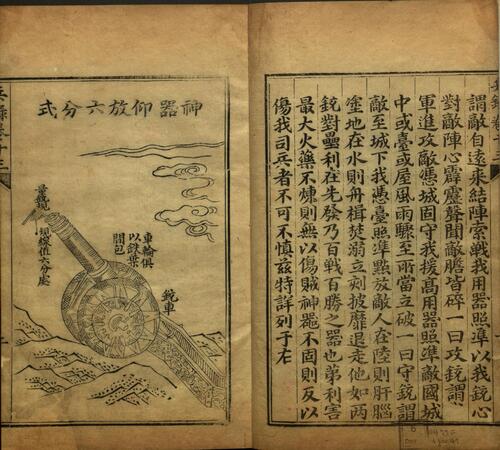 謂敵自遠來結陣索戰我用器照準以我銃心
對敵陣心霹靂聲聞敵膽皆碎一曰攻銃謂
軍進攻敵憑城固守我援高用器照準敵國城
中或臺或屋風雨驟至所當立破一曰守銃謂
敵至城下我憑臺照準點放敵人在陸則肝腦
塗地在水則舟楫焚溺立刻披靡退走他如兩
銃對壘利在先發乃百戰百勝之器也第利害
最大火藥不煉則無以傷賊神器不固則反以
傷我司兵者不可不慎茲特詳列于左
神器仰放六分式
車輪俱
以鉄葉
間包
銃車
量銃規
規線值六分處
兵錄卷十三